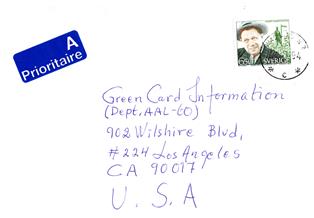 A
Prioritaire
650
SVERIGE
Green Card Information
(Dept, AAL-EO)
902 Wilshire Blvd,
#224 Los Angeles
CA 90017
U. S. A